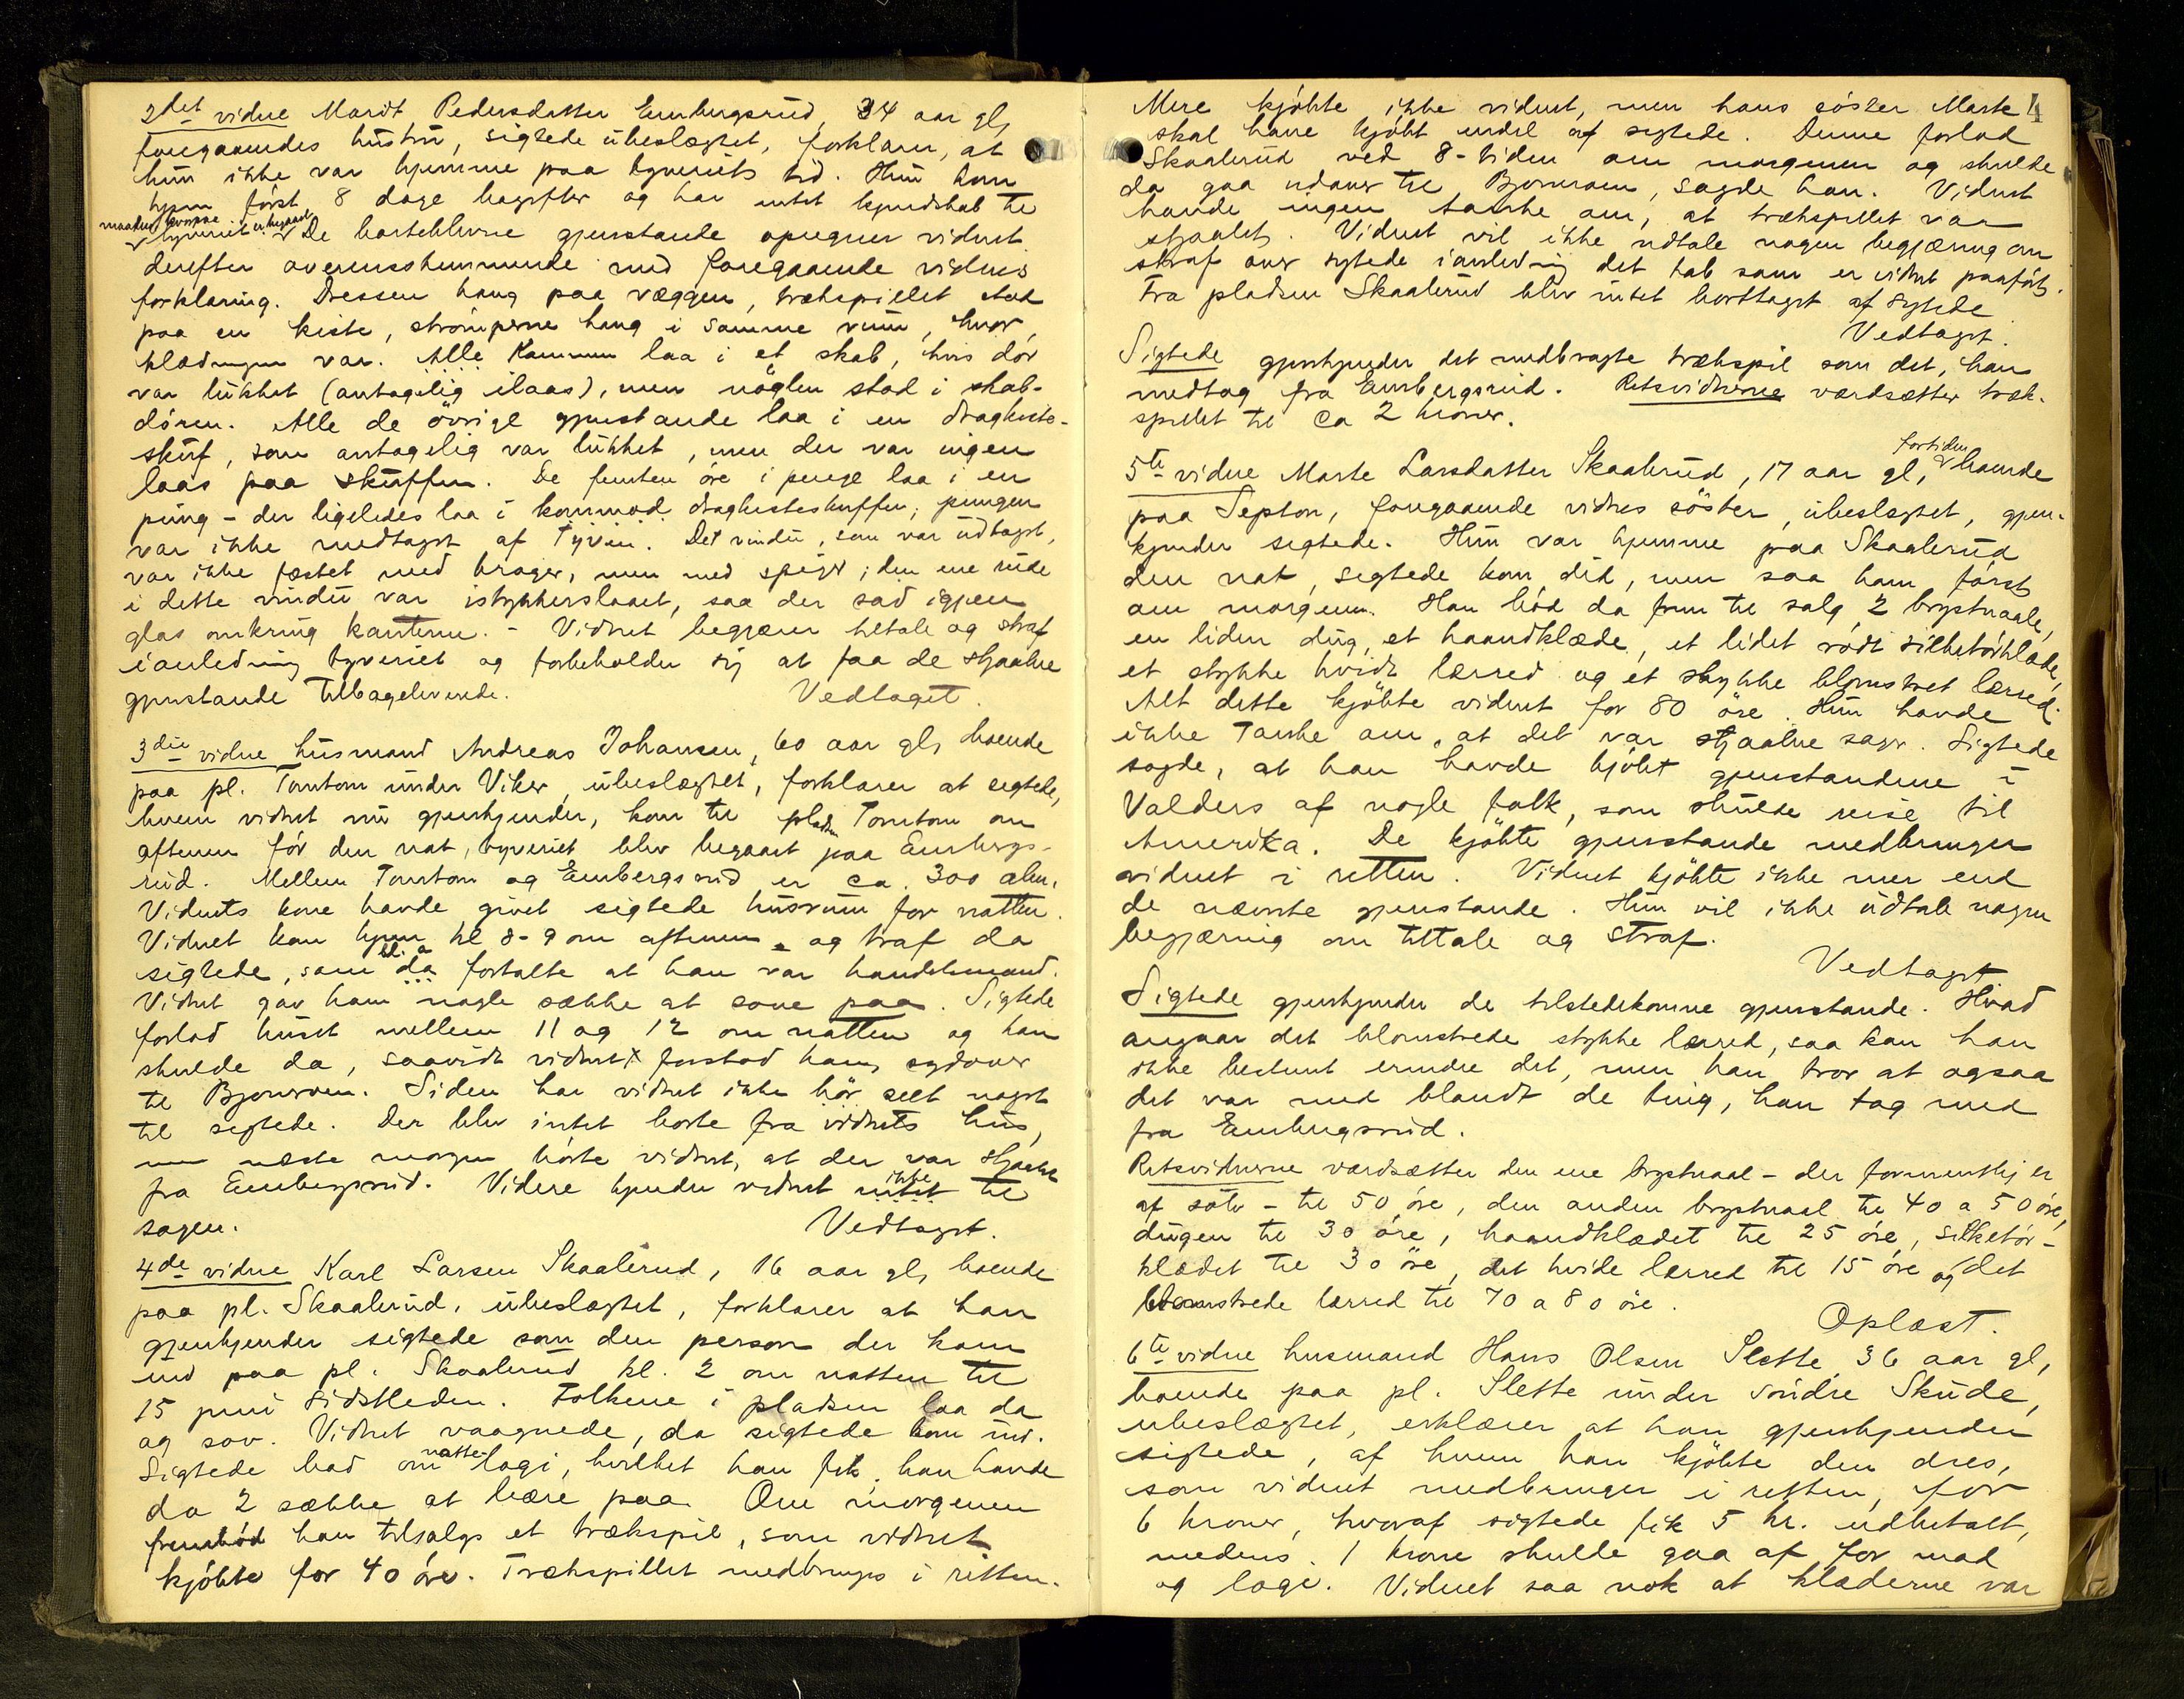 2det vidne Marit Pedersdatter Embergsrud, 34 aar gl,
foregaaendes hustru, sigtede ubeslægtet, forklarer, at
hun ikke var hjemme paa tyveriets tid. Hun kom
hjem først 8 dage bagefter og har intet kjendskab til
maaden hvorpaa
tyveriet er begaaet. De borteblevne gjenstande opregner vidnet
derefter overensstemmende med foregaaende vidnes
forklaring. Dressen hang paa væggen, trækspillet stod
paa en kiste, strømperne hang i samme rum, hvor
klædningen var. Alle Kammen laa i et skab, hvis dør
var lukket (antagelig ilaas), men nøglen stod i skab-
døren. Alle de øvrige gjenstande laa i en dragkiste-
skuf, som antagelig var lukket, men der var ingen
laas paa skuffen. De femten øre i penge laa i en
pung - der ligeledes laa i kommod dragkisteskuffen; pungen
var ikke medtaget af Tyven. Det vindu, som var udtaget,
var ikke fæstet med kroger, men med spiger; den ene rude
i dette vindu var istykkerslaaet, saa der sad igjen
glas omkring kanterne. - Vidnet begjærer tiltale og straf
i anledning tyveriet og forbeholder sig at faa de stjaalne
gjenstande tilbageleverede. Vedtaget.
3die vidne husmand Andreas Johansen, 60 aar gl, boende
paa pl. Tomtom under Viker, ubeslægtet, forklarer at sigtede,
hvem vidnet nu gjenkjender, kom til pladsen Tomtom om
aftenen før den nat, tyveriet blev begaaet paa Embergs-
rud. Mellem Tomtom og Embergsrud er ca. 300 alen.
Vidnets kone havde givet sigtede husrum for natten.
Vidnet kom hjem kl 8-9 om aftenen og traf da
sigtede, som bl. a. da fortalte at han var handelsmand.
Vidnet gav ham nogle sække at sove paa. Sigtede
forlod huset mellem 11 og 12 om natten og han
skulde da, saavidt vidnet forstod ham, sydover
til Bjoneroen. Siden har vidnet ikke hør seet noget
til sigtede. Der blev intet borte fra vidnets hus,
men næste morgen hørte vidnet, at der var stjaalet
fra Embergsrud. Videre kjender vidnet intet ikke til
sagen. Vedtaget.
4de vidne Karl Larsen Skaalerud, 16 aar gl, boende
paa pl. Skaalerud, ubeslægtet, forklarer at han
gjenkjender sigtede som den person der kom
ind paa pl. Skaalerud kl. 2 om natten til
15 juni sidstleden. Folkene i pladsen laa da
og sov. Vidnet vaagnede, da sigtede kom ind.
Sigtede bad om natte-logi, hvilket han fik, han havde
da 2 sække at bære paa. Om morgenen
frembød han tilsalgs et trækspil, som vidnet
kjøbte for 40 øre. Trækspillet medbringes i retten.
4
Mere kjøbte ikke vidnet, men hans søster Marte
skal have kjøbt endel af sigtede. Denne forlod
Skaalerud ved 8-tiden om morgenen og skulde
da gaa udover til Bjoneroen, sagde han. Vidnet
havde ingen tanke om, at trækspillet var
stjaalet. Vidnet vil ikke udtale nogen begjæring om
straf over sigtede i anledning det tab som er vidnet paaført.
Fra pladsen Skaalerud blev intet borttaget af sigtede.
Vedtaget.
Sigtede gjenkjender det medbragte trækspil som det, han
medtog fra Embergsrud. Retsvidnerne værdsætter træk-
spillet til ca 2 kroner.
5te vidne Marte Larsdatter Skaalerud, 17 aar gl, fortiden boende
paa Septon, foregaaende vidnes søster, ubeslægtet, gjen-
kjender sigtede. Hun var hjemme paa Skaalerud
den nat, sigtede kom did, men saa ham først
om morgenen. Han bød da frem til salg 2 brystnaale,
en liden dug, et haandklæde, et lidet rødt silketørklæde,
et stykke hvidt lærred og et stykke blomstret lærred.
Alt dette kjøbte vidnet for 80 øre. Hun havde
ikke Tanke om, at det var stjaalne sager. Sigtede
sagde, at han havde kjøbt gjenstandene i
Valders af nogle folk, som skulde reise til
Amerika. De kjøbte gjenstande medbringer
vidnet i retten. Vidnet kjøbte ikke mer end
de nævnte gjenstande. Hun vil ikke udtale nogen
begjæring om tiltale og straf.
Vedtaget
Sigtede gjenkjender de tilstedekomne gjenstande. Hvad
angaar det blomstrede stykke lærred, saa kan han
ikke bestemt erindre det, men han tror at ogsaa
det var med blandt de ting, han tog med
fra Embergsrud.
Retsvidnerne værdsætter den ene brystnaal - der formentlig er
af sølv - til 50 øre, den anden brystnaal til 40 a 50 øre,
dugen til 30 øre, haandklædet til 25 øre, silketør-
klædet til 30 øre, det hvide lærred til 15 øre og det
blomstrede lærred til 70 a 80 øre.
Oplæst.
6te vidne husmand Hans Olsen Slette, 36 aar gl,
boende paa pl. Slette under søndre Skude,
ubeslægtet, erklærer at han gjenkjender
sigtede, af hvem han kjøbte den dres,
som vidnet medbringer i retten, for
6 kroner, hvoraf sigtede fik 5 kr. udbetalt,
medens 1 krone skulle gaa af for mad
og logi. Vidnet saa nok at klæderne var